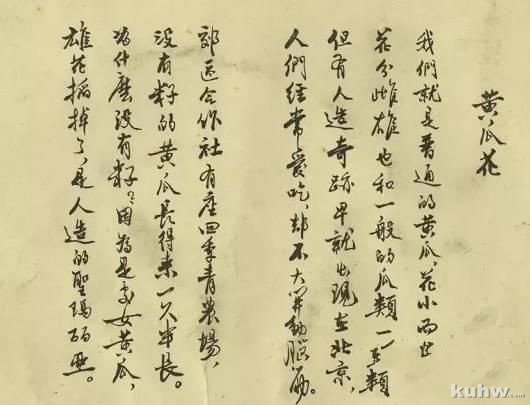 黄瓜花
我們就是普通的黄瓜,花小而
花分雌雄也和一般的瓜類一類
但有人造奇跡早就出現在北京,
人們經常愛吃,却不大動腦筋。
郊區合作社有座四季青農場,
没有籽的黄瓜長得來一尺半長。
為什麽没有籽?因為是處女黄瓜,
雄花掐掉了,是人造的聖瑪丽亞。
kuhw.com